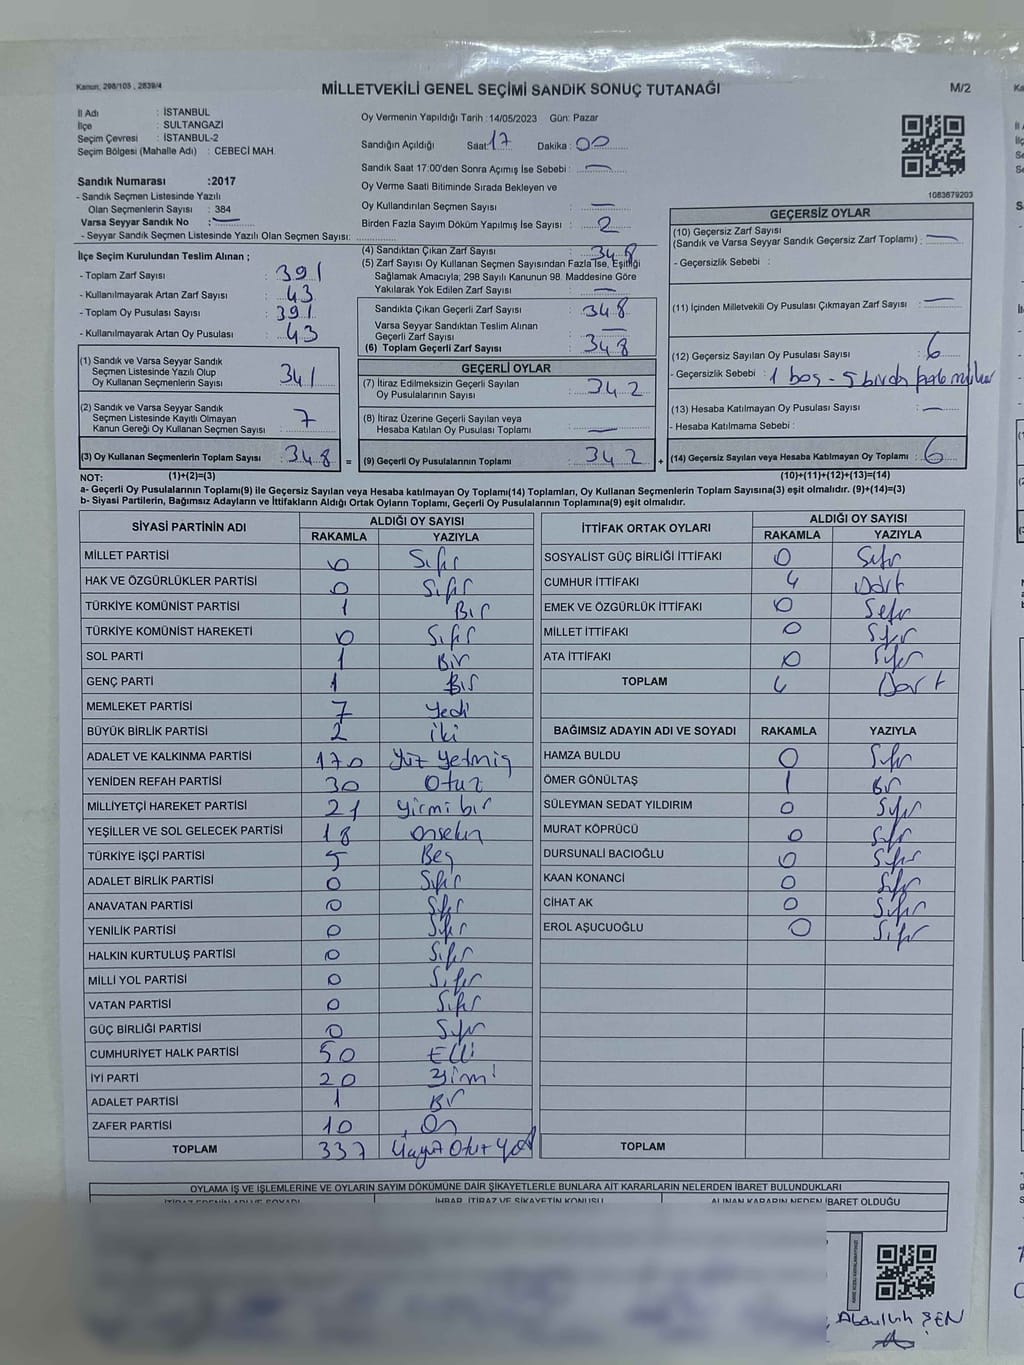 Kanun, 298/105 , 2839/4
MİLLETVEKİLİ GENEL SEÇİMİ SANDIK SONUÇ TUTANAĞI
M/2
İl Adı : İSTANBUL
İlçe : SULTANGAZİ
Seçim Çevresi : İSTANBUL-2
Seçim Bölgesi (Mahalle Adı) : CEBECİ MAH.
Sandık Numarası :2017
- Sandık Seçmen Listesinde Yazılı
Olan Seçmenlerin Sayısı : 384
Varsa Seyyar Sandık No : —
- Seyyar Sandık Seçmen Listesinde Yazılı Olan Seçmen Sayısı:
İlçe Seçim Kurulundan Teslim Alınan ;
- Toplam Zarf Sayısı : 391
- Kullanılmayarak Artan Zarf Sayısı : 43
- Toplam Oy Pusulası Sayısı : 391
- Kullanılmayarak Artan Oy Pusulası : 43
(1) Sandık ve Varsa Seyyar Sandık
Seçmen Listesinde Yazılı Olup
Oy Kullanan Seçmenlerin Sayısı : 341
(2) Sandık ve Varsa Seyyar Sandık
Seçmen Listesinde Kayıtlı Olmayan
Kanun Gereği Oy Kullanan Seçmen Sayısı : 7
(3) Oy Kullanan Seçmenlerin Toplam Sayısı : 348
Oy Vermenin Yapıldığı Tarih : 14/05/2023 Gün: Pazar
Sandığın Açıldığı Saat: 17 Dakika : 00
Sandık Saat 17:00'den Sonra Açılmış İse Sebebi : —
Oy Verme Saati Bitiminde Sırada Bekleyen ve
Oy Kullandırılan Seçmen Sayısı : —
Birden Fazla Sayım Döküm Yapılmış İse Sayısı : 2
(4) Sandıktan Çıkan Zarf Sayısı : 348
(5) Zarf Sayısı Oy Kullanan Seçmen Sayısından Fazla İse, Eşitliği
Sağlamak Amacıyla; 298 Sayılı Kanunun 98. Maddesine Göre
Yakılarak Yok Edilen Zarf Sayısı : —
Sandıkta Çıkan Geçerli Zarf Sayısı : 348
Varsa Seyyar Sandıktan Teslim Alınan
Geçerli Zarf Sayısı : —
(6) Toplam Geçerli Zarf Sayısı : 348
GEÇERLİ OYLAR
(7) İtiraz Edilmeksizin Geçerli Sayılan
Oy Pusulalarının Sayısı : 342
(8) İtiraz Üzerine Geçerli Sayılan veya
Hesaba Katılan Oy Pusulası Toplamı : —
= (9) Geçerli Oy Pusulalarının Toplamı : 342 +
1083679203
GEÇERSİZ OYLAR
(10) Geçersiz Zarf Sayısı
(Sandık ve Varsa Seyyar Sandık Geçersiz Zarf Toplamı) : —
- Geçersizlik Sebebi :
(11) İçinden Milletvekili Oy Pusulası Çıkmayan Zarf Sayısı : —
(12) Geçersiz Sayılan Oy Pusulası Sayısı : 6
- Geçersizlik Sebebi : 1 boş - 5 birden
(13) Hesaba Katılmayan Oy Pusulası Sayısı : —
- Hesaba Katılmama Sebebi :
(14) Geçersiz Sayılan veya Hesaba Katılmayan Oy Toplamı : 6
NOT: (1)+(2)=(3) (10)+(11)+(12)+(13)=(14)
a- Geçerli Oy Pusulalarının Toplamı(9) ile Geçersiz Sayılan veya Hesaba katılmayan Oy Toplamı(14) Toplamları, Oy Kullanan Seçmenlerin Toplam Sayısına(3) eşit olmalıdır. (9)+(14)=(3)
b- Siyasi Partilerin, Bağımsız Adayların ve İttifakların Aldığı Ortak Oyların Toplamı, Geçerli Oy Pusulalarının Toplamına(9) eşit olmalıdır.
SİYASİ PARTİNİN ADI ALDIĞI OY SAYISI
RAKAMLA YAZIYLA
MİLLET PARTİSİ 0 Sıfır
HAK VE ÖZGÜRLÜKLER PARTİSİ 0 Sıfır
TÜRKİYE KOMÜNİST PARTİSİ 1 Bir
TÜRKİYE KOMÜNİST HAREKETİ 0 Sıfır
SOL PARTİ 1 Bir
GENÇ PARTİ 1 Bir
MEMLEKET PARTİSİ 7 yedi
BÜYÜK BİRLİK PARTİSİ 2 iki
ADALET VE KALKINMA PARTİSİ 170 yüz yetmiş
YENİDEN REFAH PARTİSİ 30 Otuz
MİLLİYETÇİ HAREKET PARTİSİ 21 yirmi bir
YEŞİLLER VE SOL GELECEK PARTİSİ 18 onsekiz
TÜRKİYE İŞÇİ PARTİSİ 5 Beş
ADALET BİRLİK PARTİSİ 0 Sıfır
ANAVATAN PARTİSİ 0 Sıfır
YENİLİK PARTİSİ 0 Sıfır
HALKIN KURTULUŞ PARTİSİ 0 Sıfır
MİLLİ YOL PARTİSİ 0 Sıfır
VATAN PARTİSİ 0 Sıfır
GÜÇ BİRLİĞİ PARTİSİ 0 Sıfır
CUMHURİYET HALK PARTİSİ 50 Elli
İYİ PARTİ 20 yirmi
ADALET PARTİSİ 1 Bir
ZAFER PARTİSİ 10 On
TOPLAM 337
İTTİFAK ORTAK OYLARI ALDIĞI OY SAYISI
RAKAMLA YAZIYLA
SOSYALİST GÜÇ BİRLİĞİ İTTİFAKI 0 Sıfır
CUMHUR İTTİFAKI 4 Dört
EMEK VE ÖZGÜRLÜK İTTİFAKI 0 Sıfır
MİLLET İTTİFAKI 0 Sıfır
ATA İTTİFAKI 0 Sıfır
TOPLAM 4 Dört
BAĞIMSIZ ADAYIN ADI VE SOYADI RAKAMLA YAZIYLA
HAMZA BULDU 0 Sıfır
ÖMER GÖNÜLTAŞ 1 Bir
SÜLEYMAN SEDAT YILDIRIM 0 Sıfır
MURAT KÖPRÜCÜ 0 Sıfır
DURSUNALİ BACIOĞLU 0 Sıfır
KAAN KONANCİ 0 Sıfır
CİHAT AK 0 Sıfır
EROL AŞUCUOĞLU 0 Sıfır
TOPLAM
OYLAMA İŞ VE İŞLEMLERİNE VE OYLARIN SAYIM DÖKÜMÜNE DAİR ŞİKAYETLERLE BUNLARA AİT KARARLARIN NELERDEN İBARET BULUNDUKLARI
İTİRAZ EDENİN ADI VE SOYADI İHBAR, İTİRAZ VE ŞİKAYETİN KONUSU ALINAN KARARIN NEDEN İBARET OLDUĞU
ŞEN